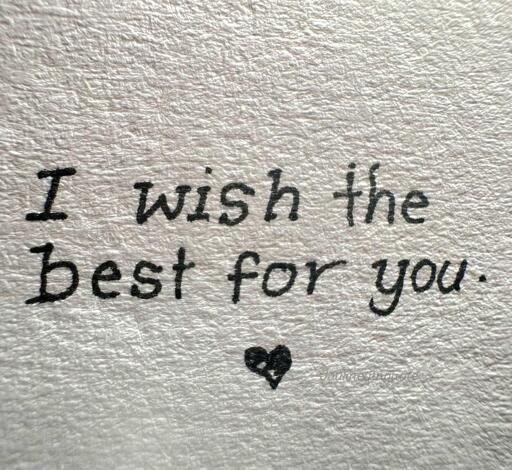 I wish the
best for you.